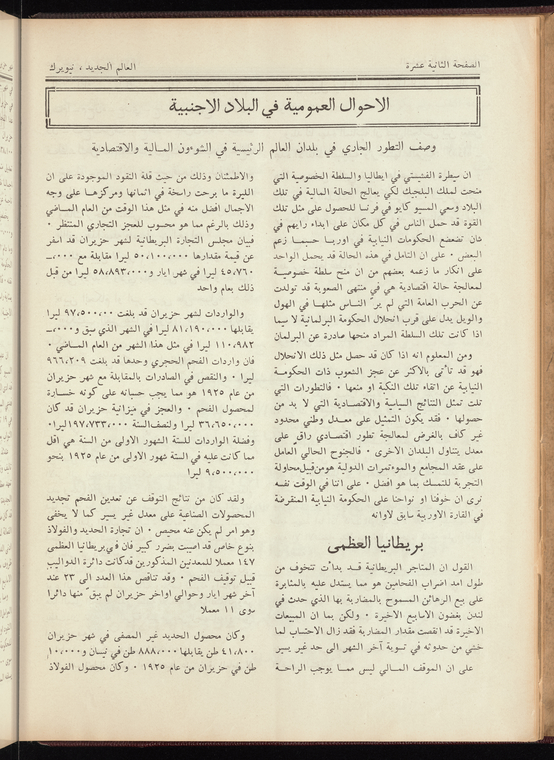 الصفحة الثانية عشرة
العالم الجديد ، نيويرك
الاحوال العمومية في البلاد الاجنبية
وصف التطور الجاري في بلدان العالم الرئيسية في الشوءون المالية والاقتصادية
ان سيطرة الفشيستي في ايطاليا والسلطة الخصوصية التي
منحت لملك البلجيك لكي يعالج الحالة المالية في تلك
البلاد وسعي المسيو كايو في فرنسا للحصول على مثل تلك
القوة قد حمل الناس في كل مكان على ابداء رايهم في
شان تضعضع الحكومات النيابية في اوربا حسبما زعم
البعض ٠ على ان التامل في هذه الحالة قد يحمل الواحد
على انكار ما زعمه بعضهم من ان منح سلطة خصوصية
لمعالجة حالة اقتصادية هي في منتهى الصعوبة قد تولدت
عن الحرب العامة التي لم ير الناس مثلها في الهول
والويل يدل على قرب انحلال الحكومة البرلمانية لا سيما
اذا كانت تلك السلطة المراد منحها صادرة عن البرلمان
ومن المعلوم انه اذا كان قد حصل مثل ذلك الانحلال
فهو قد تأتى بالاكثر عن عجز الشعوب ذات الحكومة
النيابية عن اتقاء تلك النكبة او منعها ٠ فالتطورات التي
تلت تمثل النتائج السياسية والاقتصادية التي لا بد من
حصولها ٠ فقد يكون التمثيل على معدل وطني محدود
غير كاف بالفرض لمعالجة تطور اقتصادي راق على
معدل يتناول البلدان الاخرى ٠ فالجنوح الحالي العامل
على عقد المجامع والموءتمرات الدولية هو من قبيل محاولة
التجربة للتمسك بما هو افضل ٠ على اننا في الوقت نفسه
نرى ان خوفنا او نواحنا على الحكومة النيابية المنقرضة
في القارة الاوربية سابق لاوانه
بريطانيا العظمى
القول ان المتاجر البريطانية قد بدات تتخوف من
طول امد اضراب الفحامين هو مما يستدل عليه بالمثابرة
على بيع الرهائن المسموح بالمضاربة بها الذي حدث في
لندن بغضون الاسابيع الاخيرة ٠ ولكن بما ان المبيعات
الاخيرة قد انقصت مقدار المضاربة فقد زال الاحتساب لما
خشي من حدوثه في تسوية آخر الشهر الى حد غير يسير
على ان الموقف المالي ليس مما يوجب الراحة
والاطمئنان وذلك من حيث قلة النقود الموجودة على ان
الليرة ما برحت راسخة في اثمانها ومركزها على وجه
الاجمال افضل منه في مثل هذا الوقت من العام الماضي
وذلك بالرغم مما هو محسوب للعجز التجاري المنتظر ٠
فبيان مجلس التجارة البريطانية لشهر حزيران قد اسفر
عن قيمة مقدارها ٥٠،١٠٠،٠٠٠ ليرا مقابلة مع ٠٠٠،ـ
٤٥،٧٦٠ ليرا في شهر ايار و٥٨،٨٩٣،٠٠٠ ليرا من قبل
ذلك بعام واحد
والواردات لشهر حزيران قد بلغت ٩٧،٥٠٠،٠٠ ليرا
يقابلها ٨١،١٩٠،٠٠٠ ليرا في الشهر الذي سبق و٠٠٠،ـ
١١٠،٩٨٢ ليرا في مثل هذا الشهر من العام الماضي ٠
فان واردات الفحم الحجري وحدها قد بلغت ٩٦٦،٢٠٩
ليرا ٠ والنقص في الصادرات بالمقابلة مع شهر حزيران
من عام ١٩٢٥ هو مما يجب حسبانه على كونه خسارة
لمحصول الفحم ٠ والعجز في ميزانية حزيران قد كان
٣٦،٦٥٠،٠٠٠ ليرا ولنصف السنة ١٩٧،٧٣٣،٠٠٠ ليرا٠
وفضلة الواردات للستة الشهور الاولى من السنة هي اقل
مما كانت عليه في الستة شهور الاولى من عام ١٩٢٥ بنحو
٩،٥٠٠،٠٠٠ ليرا
ولقد كان من نتائج التوقف عن تعدين الفحم تجديد
المحصولات الصناعية على معدل غير يسير كما لا يخفى
وهو امر لم يكن عنه محيص ٠ ان تجارة الحديد والفولاذ
بنوع خاص قد اصيبت بضرر كبير فان في بريطانيا العظمى
١٤٧ معملا للمعدنين المذكورين قد كانت دائرة الدواليب
قبيل توقيف الفحم ٠ وقد تناقص هذا العدد الى ٢٣ عند
آخر شهر ايار وحوالي اواخر حزيران لم يبق منها دائرا
سوى ١١ معملا
وكان محصول الحديد غير المصفى في شهر حزيران
٤١،٨٠٠ طن يقابلها ٨٨٨،٠٠٠ طن في نيسان و٠٠٠،١٠
طن في حزيران من عام ١٩٢٥ ٠ وكان محصول الفولاذ